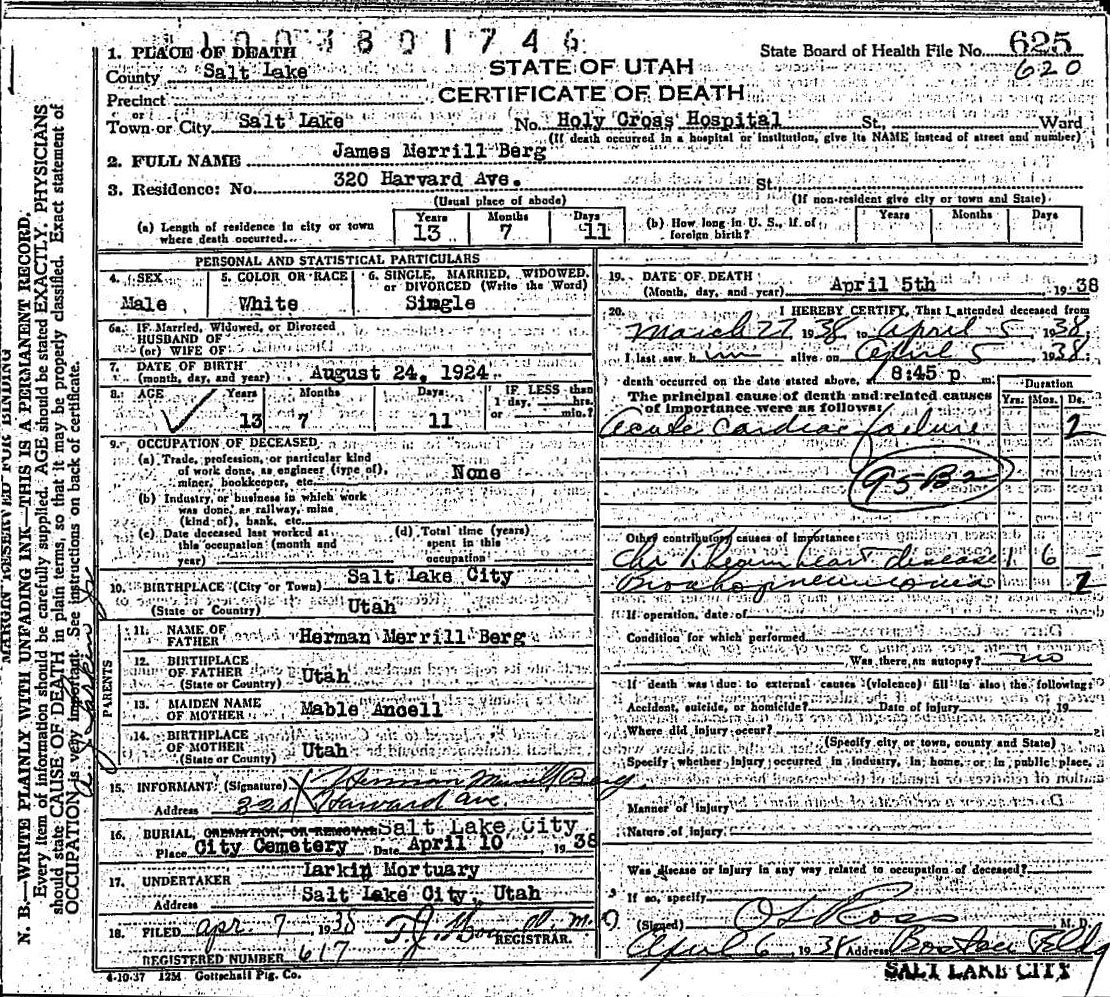 1003801746
1. PLACE OF DEATH
State Board of Health File No. 625
620
County Salt Lake
STATE OF UTAH
CERTIFICATE OF DEATH
Precinct
or
Town or City Salt Lake No. Holy Cross Hospital St. Ward
(If death occurred in a hospital or institution, give its NAME instead of street and number)
2. FULL NAME James Merrill Berg
3. Residence: No. 320 Harvard Ave. St.
(Usual place of abode) (If non-resident give city or town and State)
(a) Length of residence in city or town where death occurred. Years 13 Months 7 Days 11
(b) How long in U. S., if of foreign birth? Years Months Days
PERSONAL AND STATISTICAL PARTICULARS
4. SEX
Male
5. COLOR OR RACE
White
6. SINGLE, MARRIED, WIDOWED, or DIVORCED (Write the Word)
Single
6a. IF Married, Widowed, or Divorced
HUSBAND OF
(or) WIFE OF
7. DATE OF BIRTH
(month, day, and year) August 24, 1924
8. AGE Years 13 Months 7 Days 11 IF LESS than 1 day, hrs. or min.?
9. OCCUPATION OF DECEASED
(a) Trade, profession, or particular kind
of work done, as engineer (type of),
miner, bookkeeper, etc. None
(b) Industry, or business in which work
was done, as railway, mine
(kind of), bank, etc.
(c) Date deceased last worked at
this occupation (month and
year)
(d) Total time (years)
spent in this
occupation
10. BIRTHPLACE (City or Town) Salt Lake City
(State or Country) Utah
PARENTS
11. NAME OF
FATHER Herman Merrill Berg
12. BIRTHPLACE
OF FATHER Utah
(State or Country)
13. MAIDEN NAME
OF MOTHER Mable Ancell
14. BIRTHPLACE
OF MOTHER Utah
(State or Country)
15. INFORMANT (Signature) Herman Merrill Berg
Address 320 Harvard Ave.
16. BURIAL, CREMATION, OR REMOVAL Salt Lake City
Place City Cemetery Date April 10, 1938
17. UNDERTAKER Larkin Mortuary
Address Salt Lake City, Utah
18. FILED Apr 7 1938
REGISTRAR.
REGISTERED NUMBER 617
4-10-37 12M Gottschall Ptg. Co.
19. DATE OF DEATH
(Month, day, and year) April 5th, 1938
20. I HEREBY CERTIFY, That I attended deceased from
March 27 1938 to April 5 1938.
I last saw him alive on April 5 1938.
death occurred on the date stated above, at 8:45 p m.
The principal cause of death and related causes
of importance were as follows:
Duration
Yrs. Mos. Ds.
Acute cardiac failure 2
95-B2
Other contributory causes of importance:
Chr Rheum heart disease 1 6 -
Bronchopneumonia 2
If operation, date of
Condition for which performed
Was there an autopsy? no
If death was due to external causes (violence) fill in also the following:
Accident, suicide, or homicide? Date of injury 19
Where did injury occur?
(Specify city or town, county and State)
Specify whether injury occurred in industry, in home, or in public place.
Manner of injury
Nature of injury
Was disease or injury in any way related to occupation of deceased?
If so, specify
(Signed) O L Ross M. D.
April 6 1938 Address Boston Bldg
SALT LAKE CITY
MARGIN RESERVED FOR BINDING
N. B.—WRITE PLAINLY WITH UNFADING INK—THIS IS A PERMANENT RECORD.
Every item of information should be carefully supplied. AGE should be stated EXACTLY. PHYSICIANS
should state CAUSE OF DEATH in plain terms, so that it may be properly classified. Exact statement of
OCCUPATION is very important. See instructions on back of certificate.